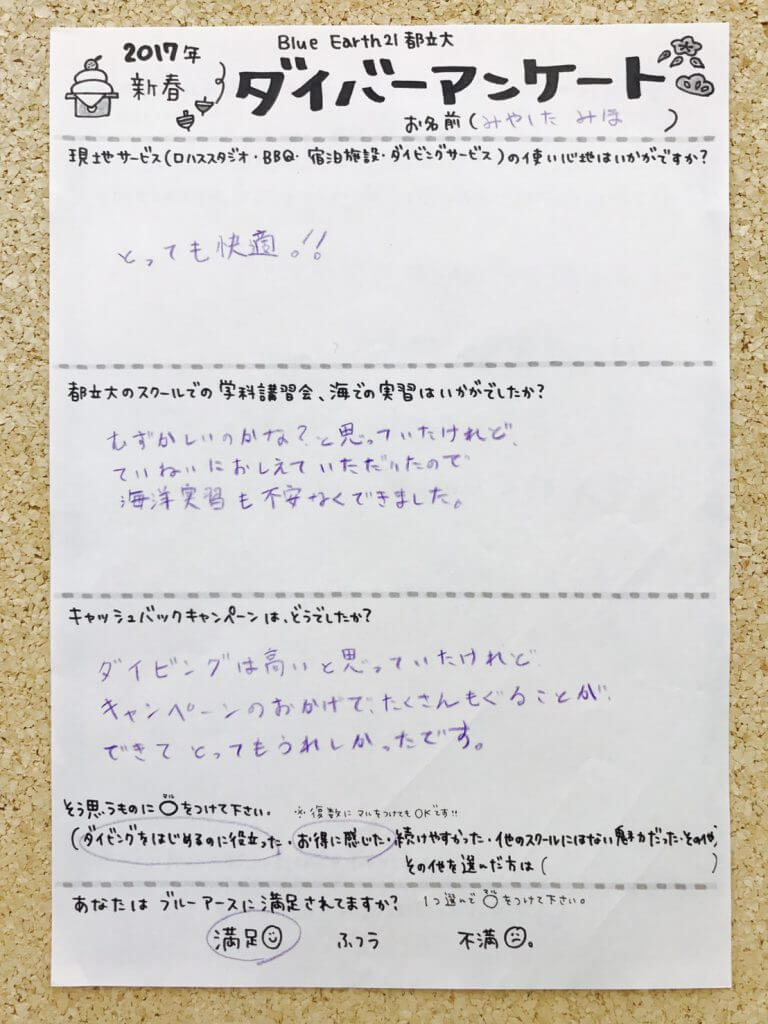 2017年
新春
Blue Earth21 都立大
ダイバーアンケート
お名前(みやした みほ)
現地サービス(ロハススタジオ・BBQ・宿泊施設・ダイビングサービス)の使い心地はいかがですか?
とっても快適。!!
都立大のスクールでの学科講習会、海での実習はいかがでしたか?
むずかしいのかな?と思っていたけれど、
ていねいにおしえていただいたので
海洋実習も不安なくできました。
キャッシュバックキャンペーンは、どうでしたか?
ダイビングは高いと思っていたけれど
キャンペーンのおかげで、たくさんもぐることが、
できてとってもうれしかったです。
そう思うものに○マルをつけて下さい。 ※複数にマルをつけてもOKです!!
(ダイビングをはじめるのに役立った・お得に感じた・続けやすかった・他のスクールにはない魅力だった・その他)
その他を選んだ方は( )
あなたはブルーアースに満足されてますか? 1つ選んで○マルをつけて下さい。
満足 ふつう 不満。